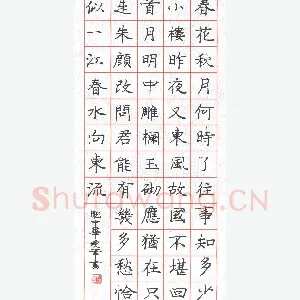 春花秋月何時了往事知多少
小樓昨夜又東風故國不堪回
首月明中雕欄玉砌應猶在只
是朱顏改問君能有幾多愁恰
似一江春水向東流
Shufawang.CN